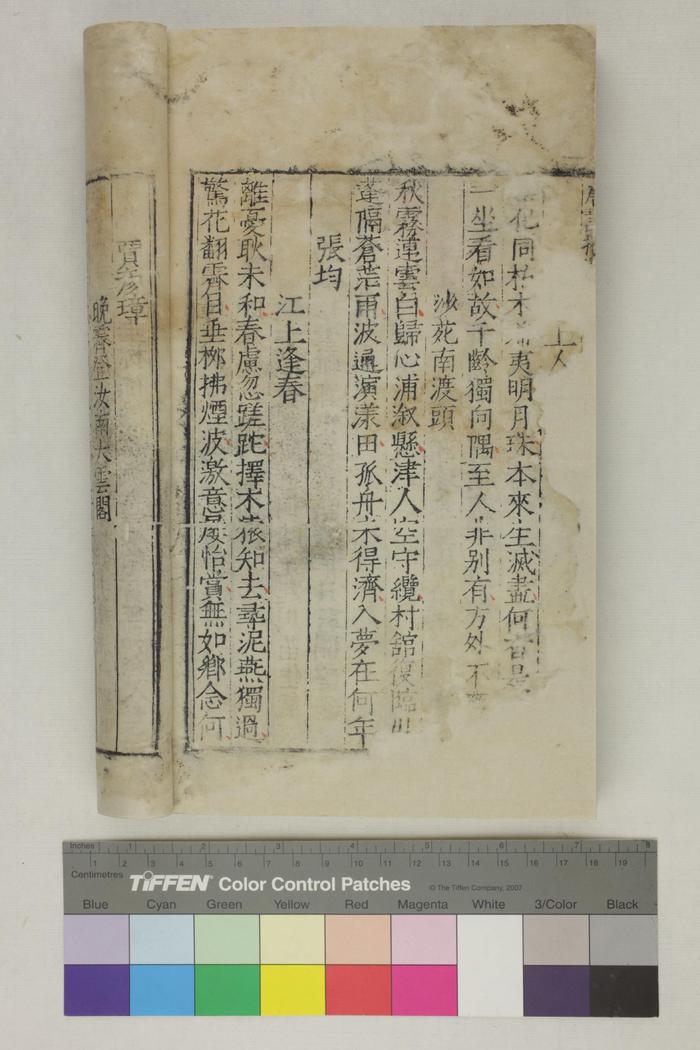 上人
化同 木 夷明月珠本來生滅盡何 是
一坐看如故千齡獨向隅至人非别有方外不
沙苑南渡頭
秋霧連雲白歸心浦溆懸津人空守纜村舘復臨川
蓬隔蒼茫雨波通演漾田孤舟未得濟入夢在何年
張均
江上逢春
離憂耿未和春慮忽蹉跎擇木 知去尋泥燕獨過
驚花翻霽日垂栁拂煙波激意 怡賞無如鄉念何
賈彦璋
晚霽登汝南大雲閣
Inches 1 2 3 4 5 6 7 8
Centimetres 1 2 3 4 5 6 7 8 9 10 11 12 13 14 15 16 17 18 19
TIFFEN® Color Control Patches © The Tiffen Company, 2007
Blue Cyan Green Yellow Red Magenta White 3/Color Black